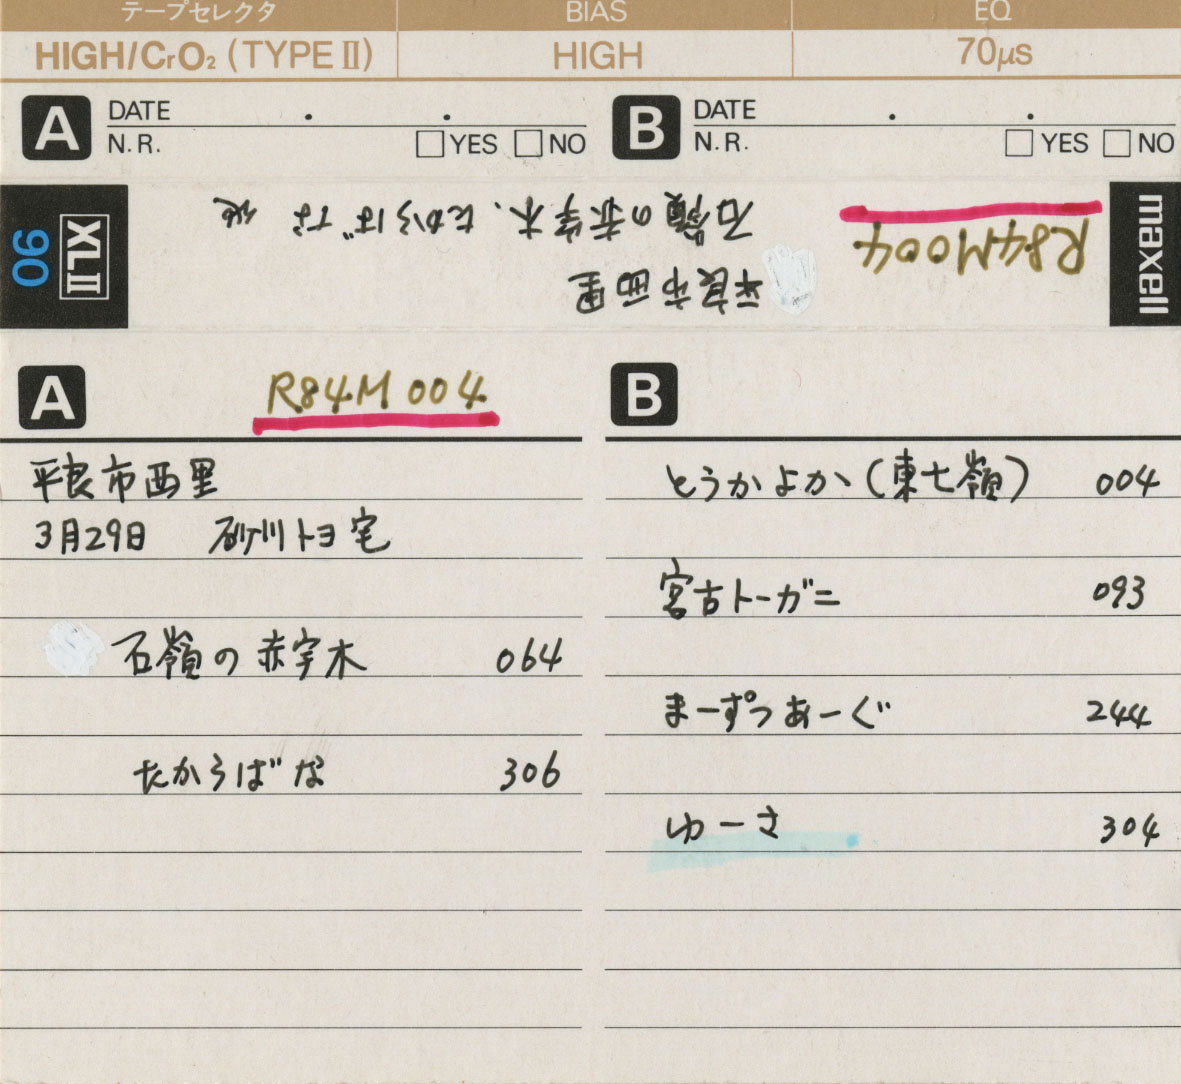 テープセレクタ BIAS EQ
HIGH/CrO2 (TYPE II) HIGH 70μs
A DATE . . B DATE . .
N.R. YES NO N.R. YES NO
XLII 90
maxell
R84M004
平良市西里
石嶺の赤宇木、たからばな 他
A R84M004
平良市西里
3月29日 砂川トヨ宅
石嶺の赤宇木 064
たからばな 306
B
とうかよか(東七嶺) 004
宮古トーガニ 093
まーずつあーぐ 244
ゆーさ 304